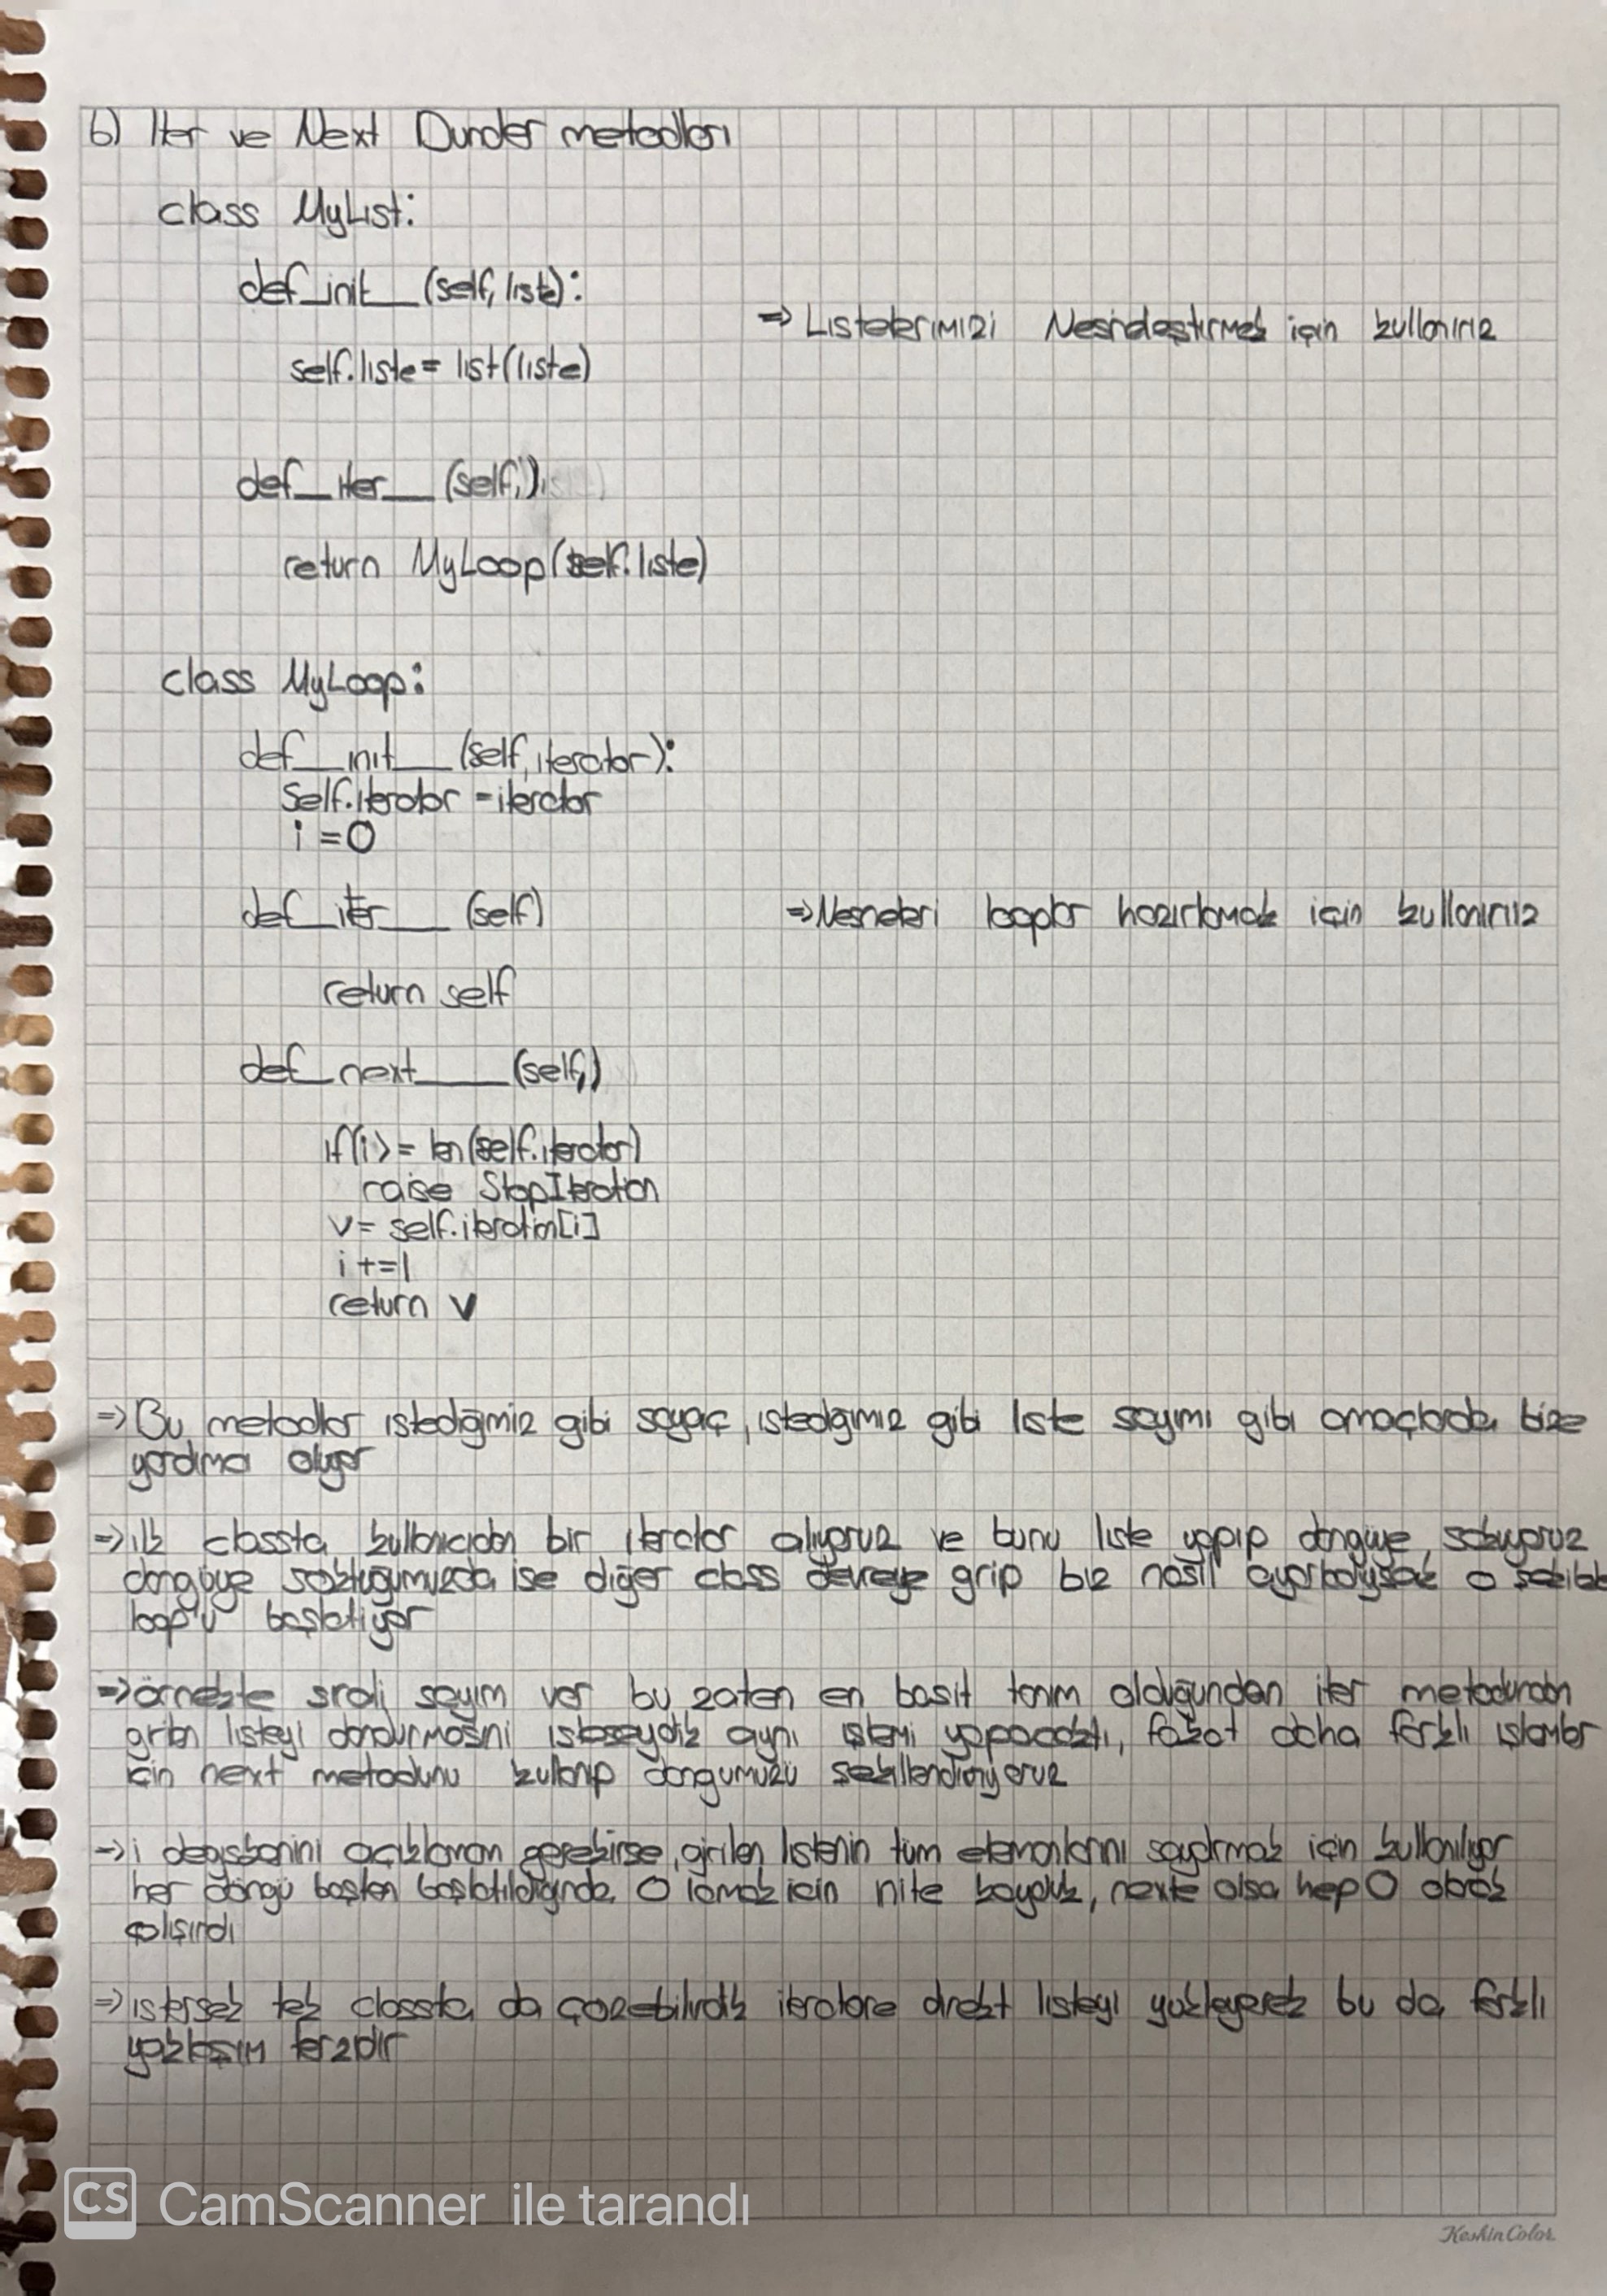 b) Iter ve Next Dunder metodları
class MyList:
def_init__(self, liste):
=> Listelerimizi Nesneleştirmek için kullanırız
self.liste = list(liste)
def_iter__(self,)
return MyLoop(self.liste)
class MyLoop:
def__init__(self, iterator):
self.iterator = iterator
i = 0
def_iter__(self)
=> Nesneleri loopla hazırlamak için kullanırız
return self
def_next__(self,)
if(i >= len(self.iterator)
raise StopIteration
v = self.iteration[i]
i += 1
return v
=> Bu metodlar istediğimiz gibi sayaç, istediğimiz gibi liste sayımı gibi amaçlarda bize
yardımcı oluyor
=> ilk classta kullanıcıdan bir iterator alıyoruz ve bunu liste yapıp döngüye sokuyoruz
döngüye soktuğumuzda ise diğer class devreye girip biz nasıl ayarladıysak o şekilde
loop'u başlatıyor
=> örnekte sıralı sayım var bu zaten en basit tanım olduğundan iter metodundan
girilen listeyi döndürmesini isteseydik aynı işlemi yapacaktı, fakat daha farklı işlemler
için next metodunu kullanıp döngümüzü şekillendiriyoruz
=> i değişkenini açıklamam gerekirse, girilen listenin tüm elemanlarını saydırmak için kullanılıyor
her döngü baştan başlatıldığında 0 lamak için inite koyduk, nexte olsa hep 0 olarak
çalışırdı
=> istersek tek classta da çözebilirdik iteratore direkt listeyi yükleyerek bu da farklı
yaklaşım tarzıdır
CS CamScanner ile tarandı
KeskinColor